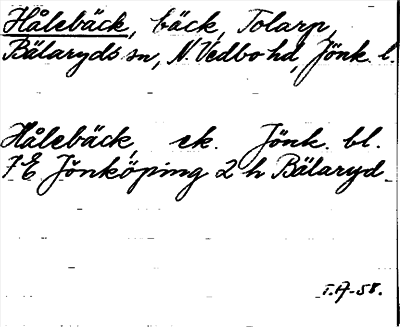 Hålebäck, bäck, Tolarp,
Bälaryds sn, N. Vedbo hd, Jönk. l.
Hålebäck, ek. Jönk. bl.
7E Jönköping 2 h Bälaryd
T.A-58.